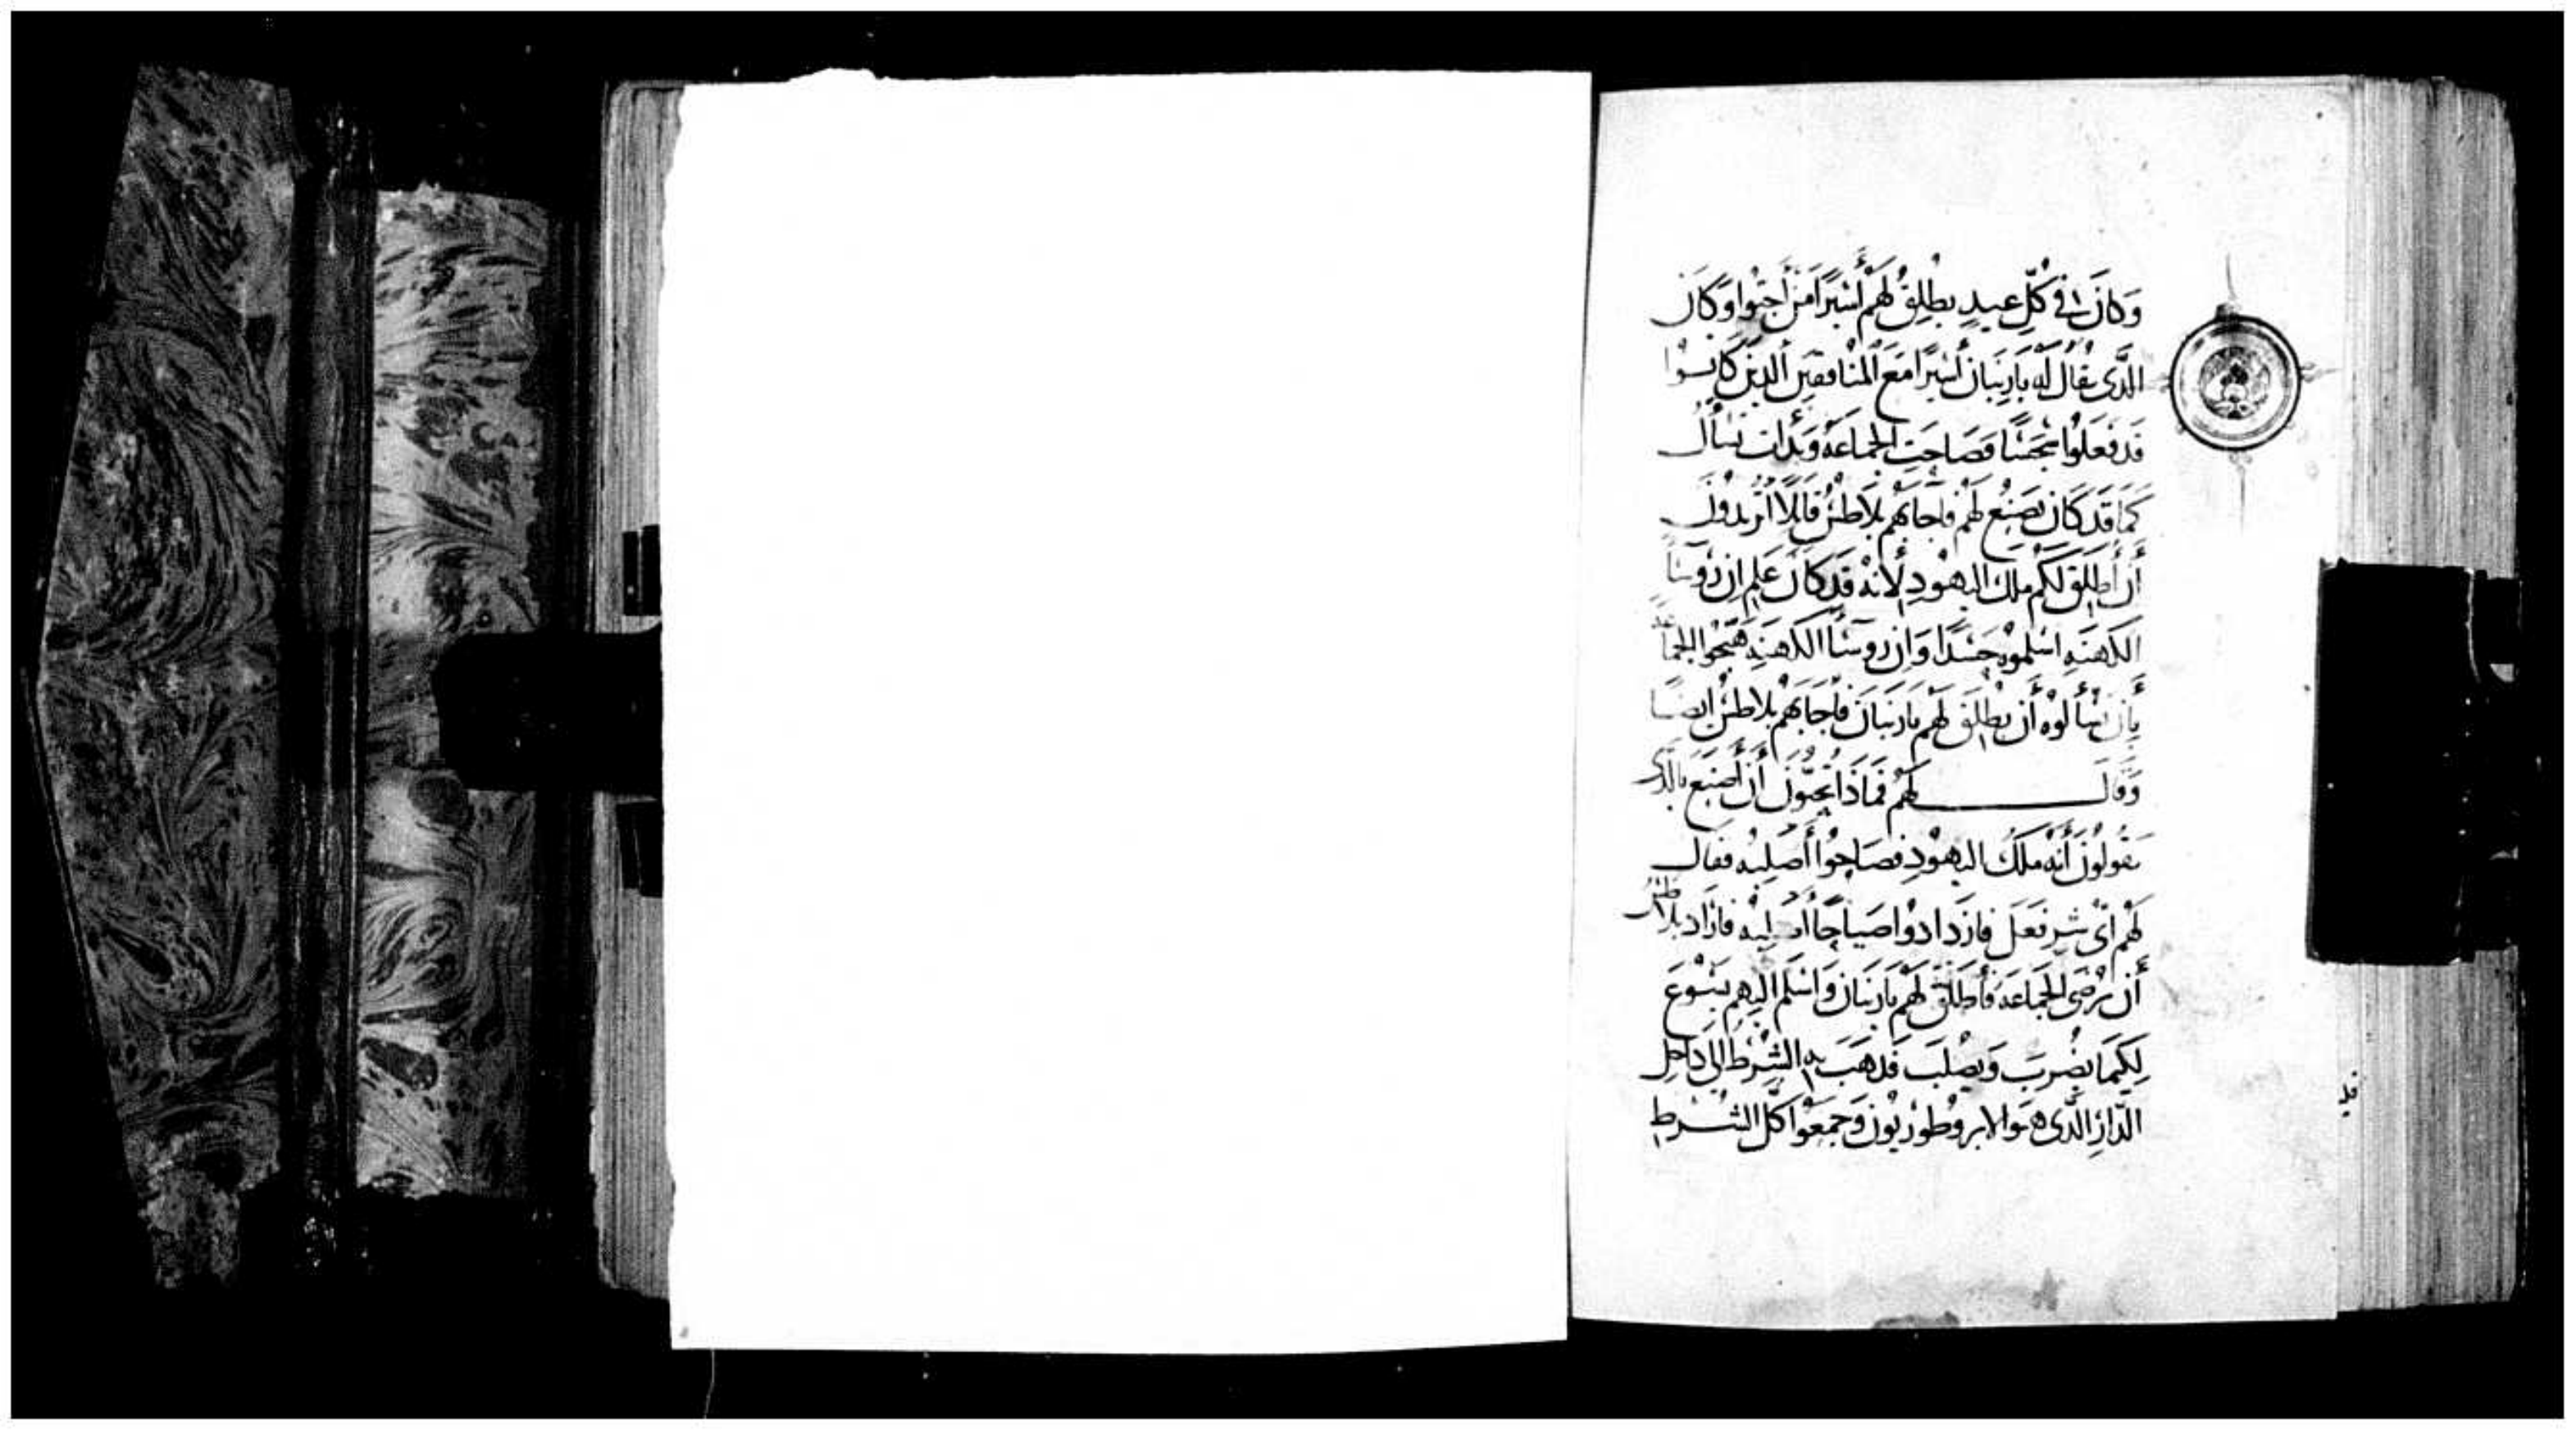 وَكَانَ فِي كُلِّ عِيدٍ يُطْلِقُ لَهُمْ أَسِيرًا مَنْ أَحَبُّوا وَكَانَ
الَّذِي يُقَالُ لَهُ بَارَبَّانَ أَسِيرًا مَعَ الْمُنَافِقِينَ الَّذِينَ كَانُوا
قَدْ فَعَلُوا فَصَاحَتِ الْجَمَاعَةُ وَبَدَأَت تَسْأَلُ
كَمَا قَدْ كَانَ يَصْنَعُ لَهُمْ فَأَجَابَهُمْ بِلَاطُسُ قَائِلًا أَتُرِيدُونَ
أَنْ أُطْلِقَ لَكُمْ مَلِكَ الْيَهُودِ لِأَنَّهُ قَدْ كَانَ عَلِمَ إِنَّ رُوسَا
الْكَهَنَةِ اسْلَمُوهُ حَسَدًا وَإِنَّ رُوسَا الْكَهَنَةِ هَيَّجُوا الْجَمَاعَةَ
بِأَنْ يَسْأَلُوهُ أَنْ يُطْلِقَ لَهُمْ بَارَبَّانَ فَأَجَابَهُمْ بِلَاطُسُ ايْضًا
وَقَالَ لَهُمْ فَمَاذَا تُحِبُّونَ أَنْ أَصْنَعَ بِالَّذِي
تَقُولُونَ أَنَّهُ مَلِكُ الْيَهُودِ فَصَاحُوا أَصْلِبْهُ فَقَالَ
لَهُمْ أَيَّ شَرٍّ فَعَلَ فَازْدَادُوا صِيَاحًا أَصْلِبْهُ فَأَرَادَ بِلَاطُسُ
أَنْ يُرْضِيَ الْجَمَاعَةَ فَأَطْلَقَ لَهُمْ بَارَبَّانَ وَاسْلَمَ إِلَيْهِمْ يَسُوعَ
لِكَيْمَا يُضْرَبَ وَيُصْلَبَ فَذَهَبَ بِهِ الشُّرَطُ إِلَى دَاخِلِ
الدَّارِ الَّذِي هُوَ الابروطوريون وَجَمَعُوا كُلَّ الشُّرَطِ